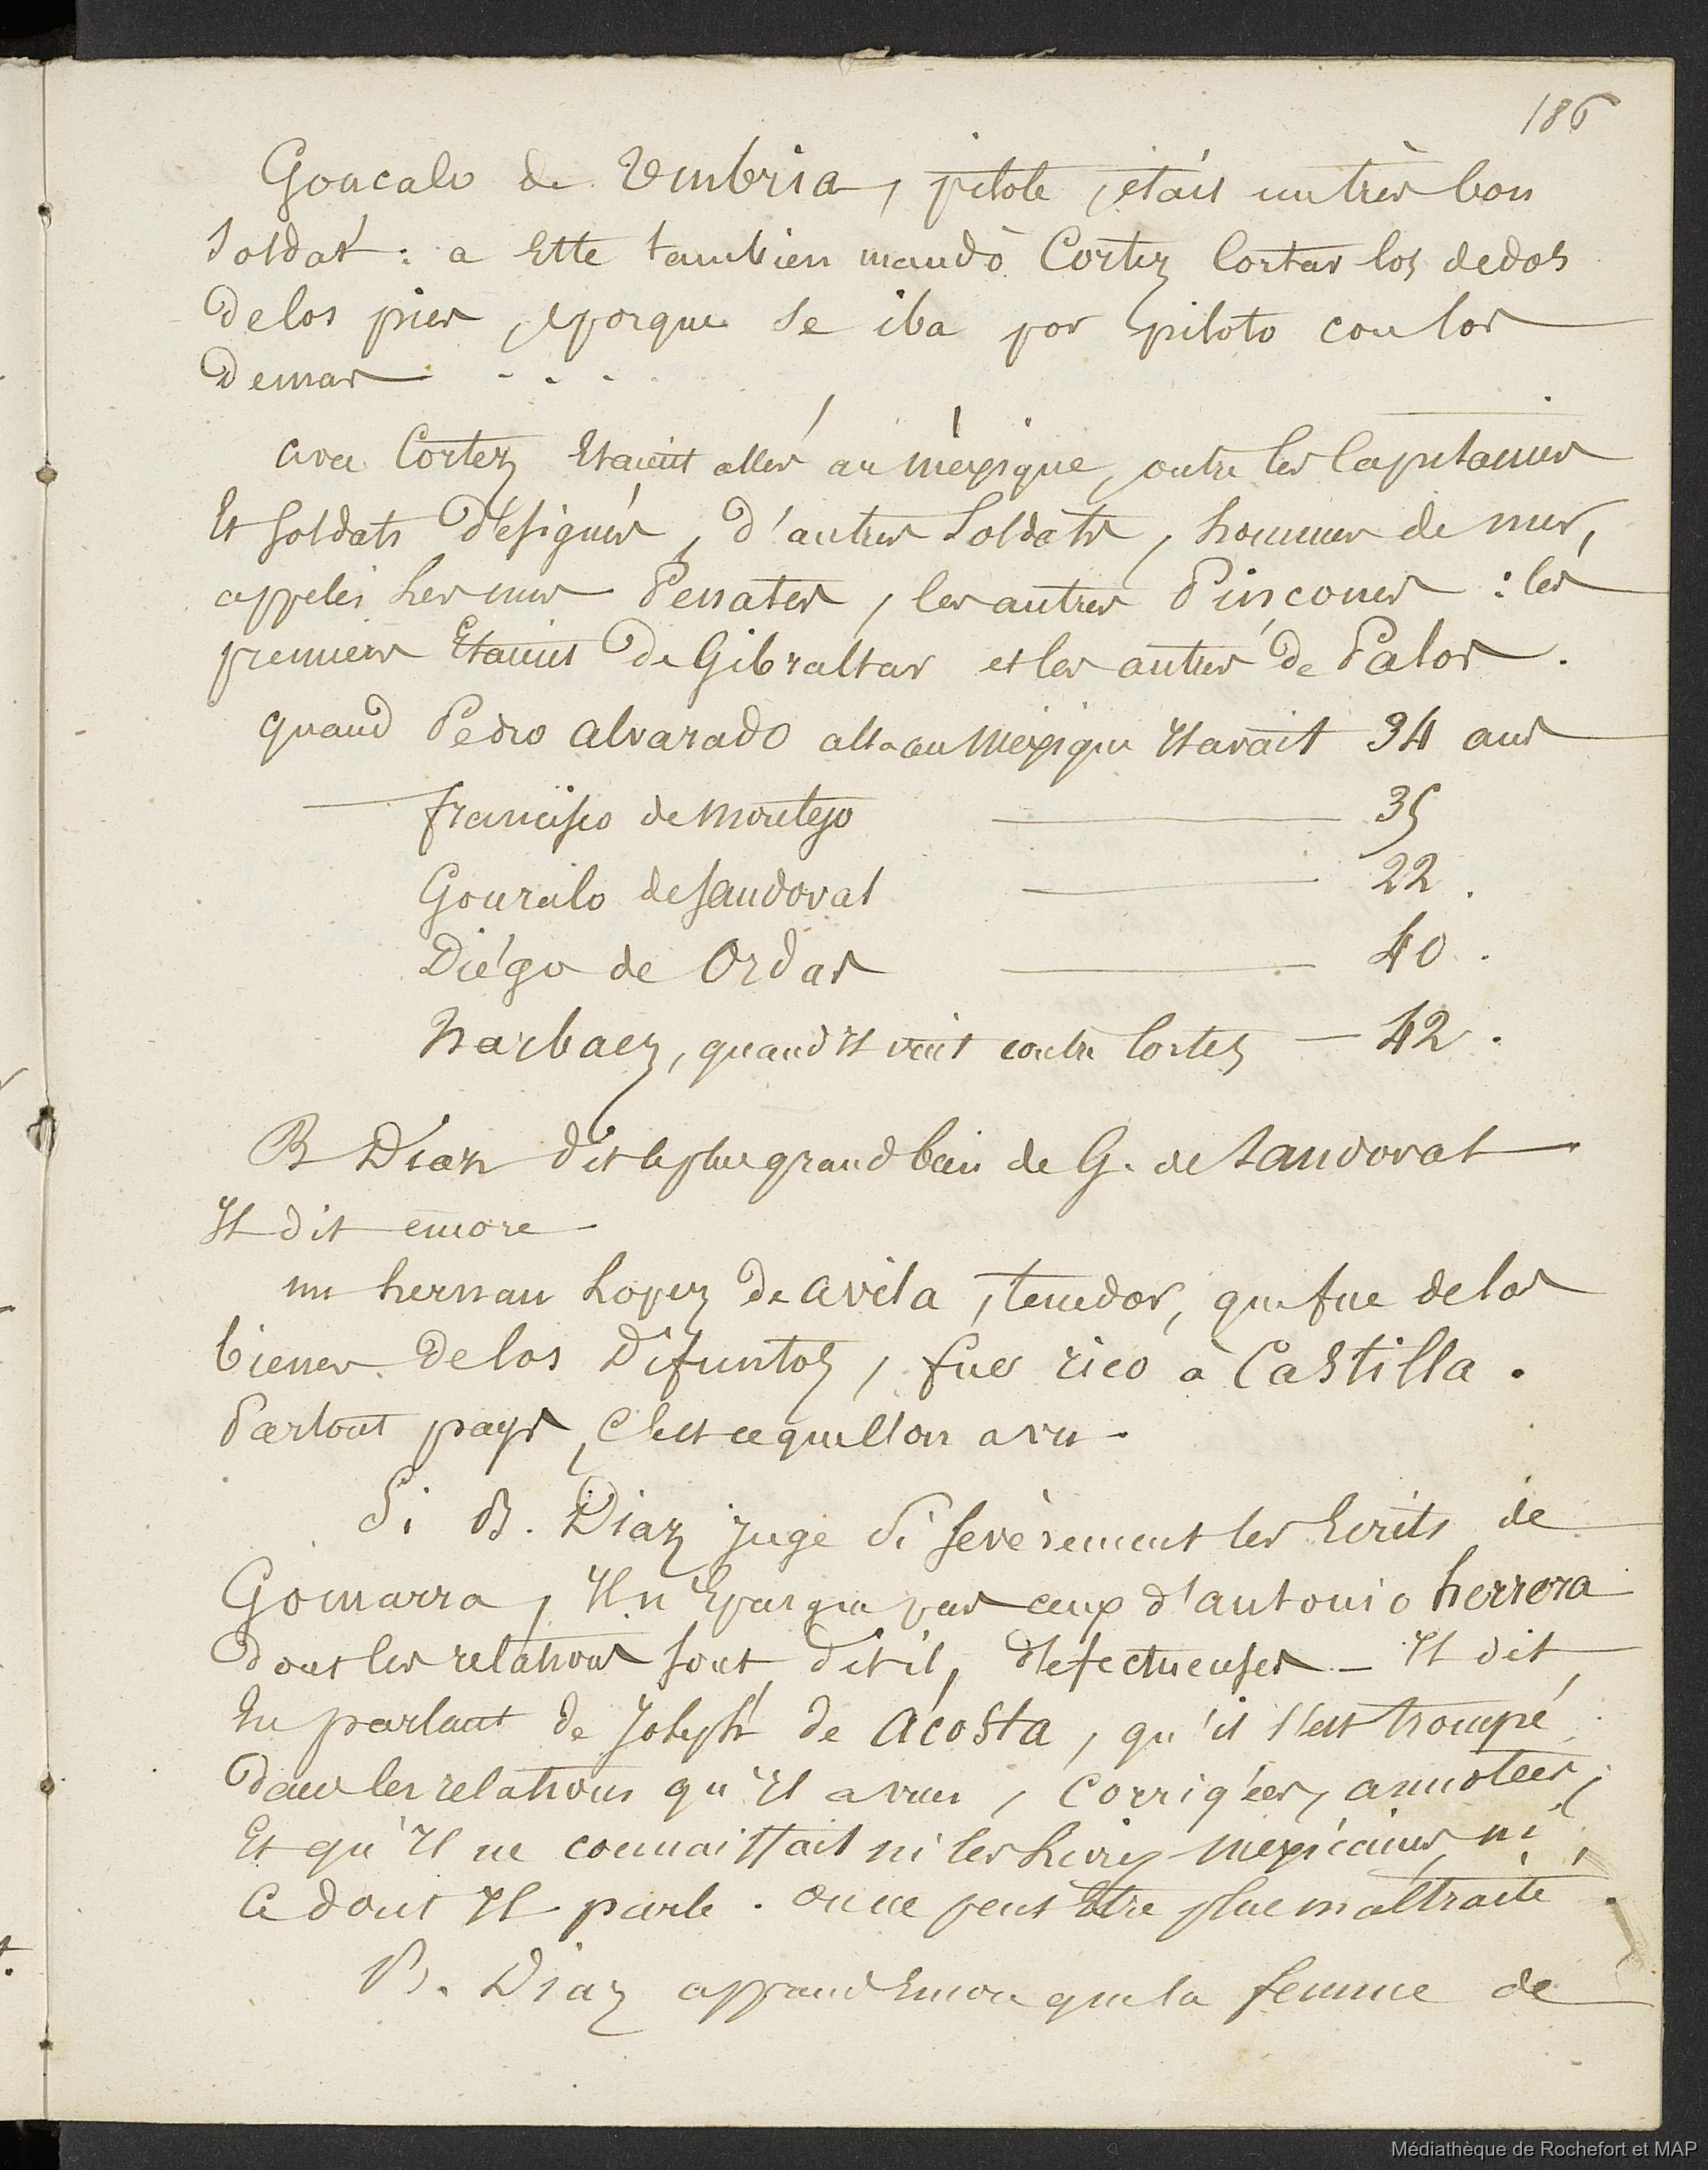 186
Goncalo de Umbria, pilote, était un très bon
Soldat : a Este tambien mandò Cortez Cortar los dedos
de los pies, porque se iba por piloto con los
demas - - -
avec Cortez Etaient allés au méxique, outre les Capitaines
Et soldats désignés, d'autres Soldats, hommes de mer,
appelés les uns Penates, les autres Pinzones : les
premiers Etaient de Gibraltar et les autres de Palos.
quand Pedro alvarado alla au Méxique Il avait 34 ans
— francisco de Montejo — 35
Gonzalo de Sandoval — 22.
Diégo de Ordas — 40.
Narbaez, quand Il vint contre Cortez — 42.
B Diaz dit le plus grand bien de G. de Sandoval
Il dit encore
un hernan Lopez de avila, tenedor, que fue de los
bienes de los Difuntos, fue rico à Castilla.
Partout pays, C'est ce que l'on a vu.
Si B. Diaz juge si sevèrement les Ecrits de
Gomarra, Il n'Epargne pas ceux d'antonio herrera
dont les relations sont, dit il, défectueuses — Il dit,
En parlant de Joseph de Acosta, qu'il s'est trompé
dans les relations qu'Il a vues, Corrigées, annotées,
Et qu'Il ne connaissait ni les Livres Mexicains ni
Ce dont Il parle. On ne peut Etre plus maltraité.
B. Diaz apprend Encore que la femme de
Médiathèque de Rochefort et MAP